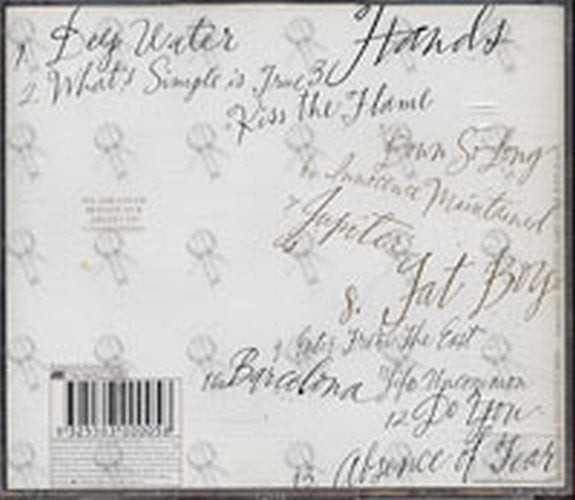 1. Deep Water
Hands
2. What's Simple is True 3.
Kiss the Flame
Down So Long
6. Innocence Maintained
7. Jupiter
8. Fat Boy
9. Enter From The East
10. Barcelona
11. Life Uncommon
12. Do You
13 Absence of Fear